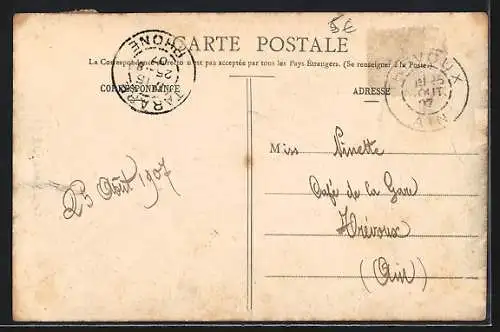 5€
CARTE POSTALE
La Correspondance au recto n'est pas acceptée par tous les Pays Étrangers. (Se renseigner à la Poste)
CORRESPONDANCE
ADRESSE
TARARE
25
07
RHONE
TREVOUX
25
AOUT
07
AIN
Miss Ninette
Café de la Gare
Trévoux
(Ain)
25 Août 1907